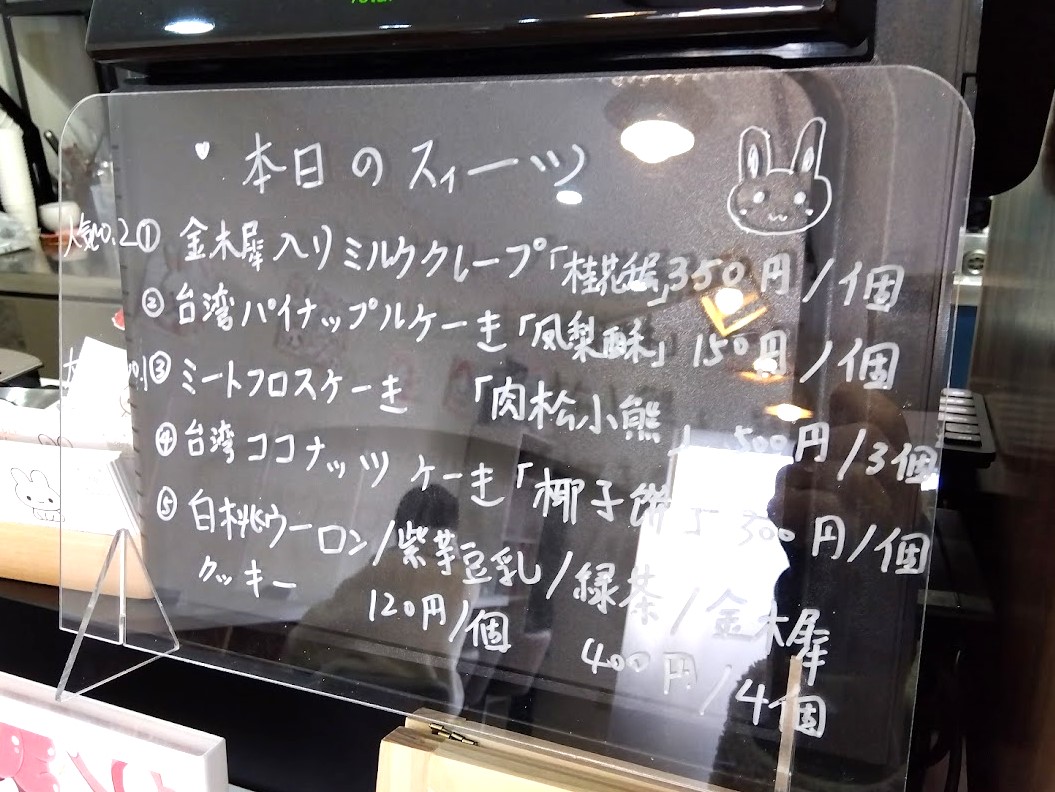 本日のスィーツ
人気no.2① 金木犀入りミルククレープ「桂花 」350円/個
② 台湾パイナップルケーキ「凤梨酥」150円/個
no.1③ ミートフロスケーキ 「肉松小熊」 500円/3個
④ 台湾ココナッツケーキ「椰子餅」 300円/個
⑤ 白桃ウーロン/紫芋豆乳/緑茶/金木犀
クッキー
120円/個
400円/4個